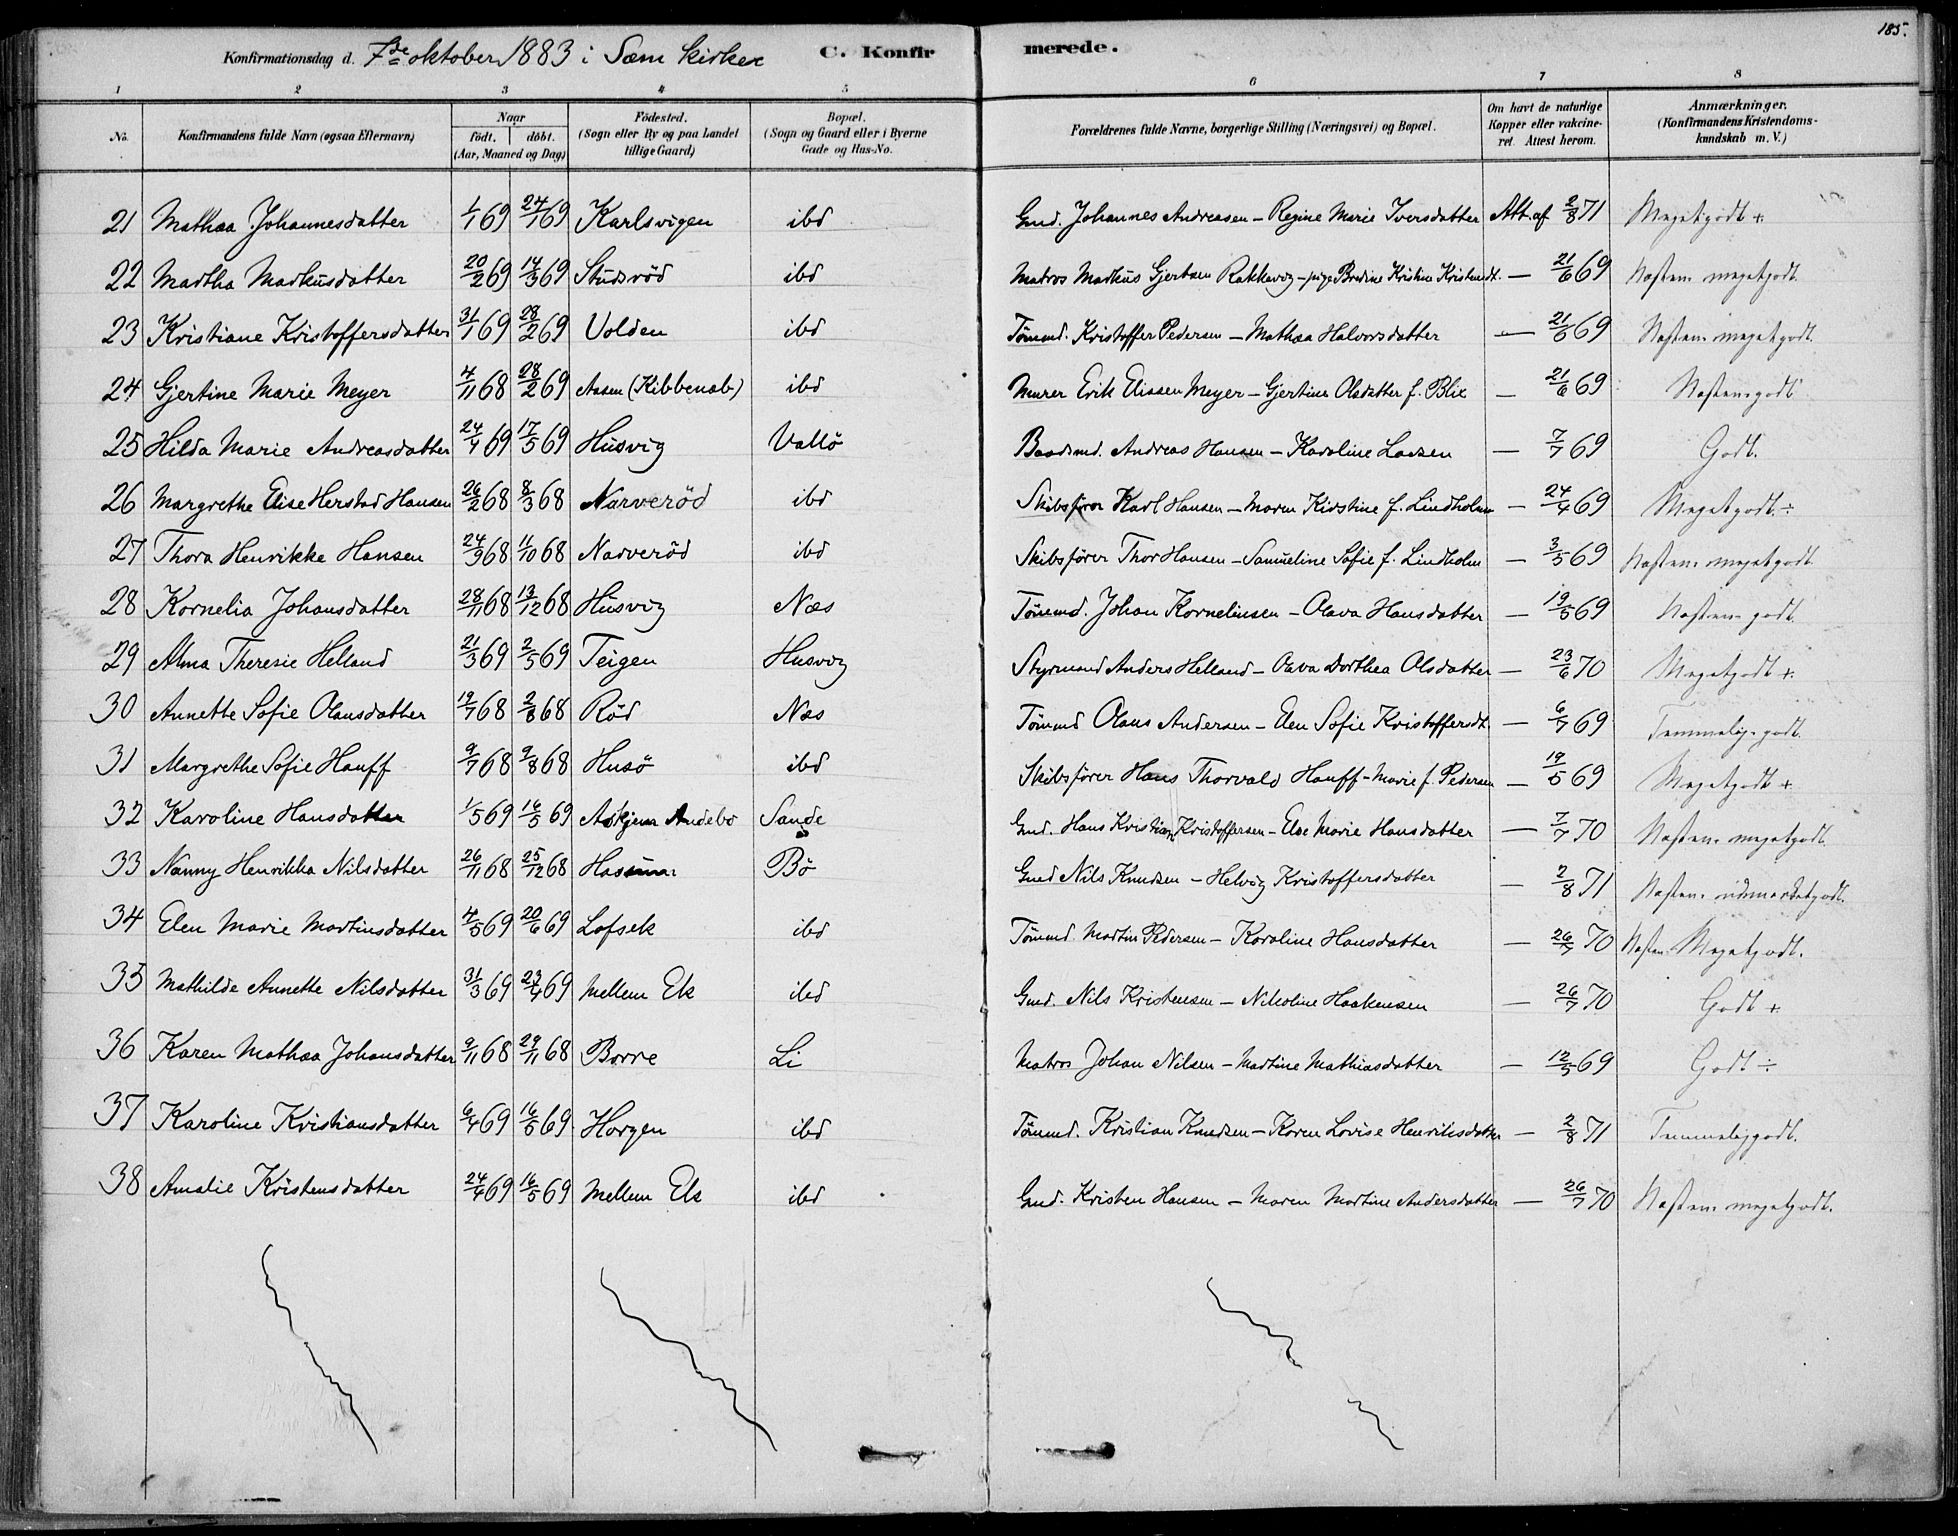 185.
Konfirmationsdag d. 7de oktober 1883 i Sæm kirke C. Konfirmerede.
1 2 3 4 5 6 7 8
No. Konfirmandens fulde Navn (ogsaa Efternavn) Naar født. døbt. (Aar, Maaned og Dag) Fødested. (Sogn eller By og paa Landet tillige Gaard) Bopæl. (Sogn og Gaard eller i Byerne Gade og Hus-No. Forældrenes fulde Navne, borgerlige Stilling (Næringsvei) og Bopæl. Om havt de naturlige Kopper eller vakcineret. Attest herom. Anmærkninger. (Konfirmandens Kristendomskundskab m. V.)
21 Mathea Johannesdatter 1/1 69 24/1 69 Karlsvigen ibd Gmd. Johannes Andreasen – Regine Marie Iversdatter Att. af 2/8 71 Megetgodt +
22 Martha Markusdatter 20/2 69 14/3 69 Studsrød ibd Matros Markus Gjertsen Rakkevig – pige Bredine Kristine Kristensdt. — 21/6 69 Næsten megetgodt.
23 Kristiane Kristoffersdatter 31/1 69 28/2 69 Volden ibd Tømmd. Kristoffer Pedersen – Mathea Halvorsdatter — 21/6 69 Næsten megetgodt.
24 Gjertine Marie Meyer 4/11 68 28/2 69 Aasen (Kibbenab) ibd Murer Erik Elissen Meyer – Gjertine Olsdatter f. Blix — 21/6 69 Næsten godt
25 Hilda Marie Andreasdatter 24/4 69 17/5 69 Husvig Vallø Baadsmd. Andreas Hansen – Karoline Larsen — 7/7 69 Godt.
26 Margrethe Elise Herstad Hansen 26/2 68 8/3 68 Narverød ibd Skibsfører Karl Hansen – Maren Kirstine f. Lindholm — 24/4 69 Megetgodt ÷
27 Thora Henrikke Hansen 24/9 68 11/10 68 Narverød ibd Skibsfører Thor Hansen – Samueline Sofie f. Lindholm — 3/5 69 Næsten megetgodt
28 Kornelia Johansdatter 28/11 68 13/12 68 Husvig Næs Tømmd. Johan Korneliussen – Olava Hansdatter — 19/5 69 Næsten godt.
29 Alma Theresie Helland 21/3 69 2/5 69 Teigen Husvig Styrmand Anders Helland – Olava Dorthea Olsdatter — 23/6 70 Megetgodt +
30 Annette Sofie Olausdatter 19/7 68 2/8 68 Rød Næs Tømmd Olaus Andersen – Elen Sofie Kristoffersdt. — 6/7 69 Temmelig godt.
31 Margrethe Sofie Hauff 9/7 68 9/8 68 Husø ibd Skibsfører Hans Thorvald Hauff – Marie f. Pedersen — 19/5 69 Megetgodt +
32 Karoline Hansdatter 1/5 69 16/5 69 Askjem Andebo Sande Gmd. Hans Kristian Kristoffersen – Else Marie Hansdatter — 7/7 70 Næsten megetgodt.
33 Nanny Henrikka Nilsdatter 26/11 68 25/12 68 Hassum Bø Gmd Nils Knudsen – Helvig Kristoffersdatter — 2/8 71 Næsten udmærketgodt.
34 Elen Marie Martinsdatter 4/5 69 20/6 69 Lofsek ibd Tømmd. Martin Pedersen – Karoline Hansdatter — 26/7 70 Næsten Megetgodt.
35 Mathilde Annette Nilsdatter 31/3 69 23/4 69 Mellem Ek ibd Gmd. Nils Kristensen – Nikoline Haakensen — 26/7 70 Godt +
36 Karen Mathea Johansdatter 9/11 68 29/11 68 Borre Li Matros Johan Nilsen – Martine Mathiasdatter — 12/5 69 Godt ÷
37 Karoline Kristiansdatter 6/4 69 16/5 69 Horgen ibd Tømmd. Kristian Knudsen – Karen Lovise Henriksdatter — 2/8 71 Temmeliggodt.
38 Amalie Kristensdatter 24/4 69 16/5 69 Mellem Ek ibd Gmd. Kristen Hansen – Maren Martine Andersdatter — 26/7 70 Næsten megetgodt.